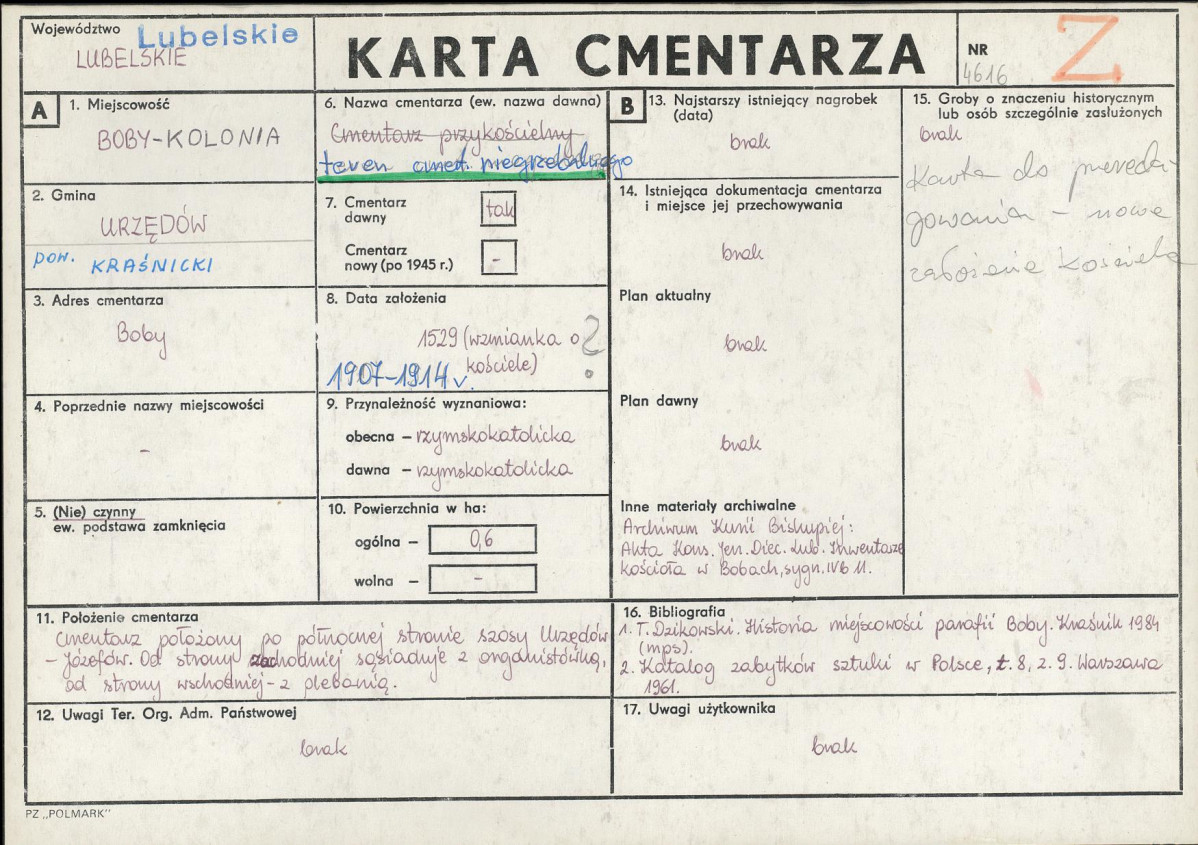 Województwo Lubelskie
LUBELSKIE
KARTA CMENTARZA
NR
4616
Z
A
1. Miejscowość
BOBY-KOLONIA
2. Gmina
URZĘDÓW
pow. KRAŚNICKI
3. Adres cmentarza
Boby
4. Poprzednie nazwy miejscowości
-
5. (Nie) czynny
ew. podstawa zamknięcia
6. Nazwa cmentarza (ew. nazwa dawna)
Cmentarz przykościelny
teren cmet. niegrzebalnego
7. Cmentarz
dawny
tak
Cmentarz
nowy (po 1945 r.)
-
8. Data założenia
1529 (wzmianka o
kościele)
?
1907-1914 v.
9. Przynależność wyznaniowa:
obecna – rzymskokatolicka
dawna – rzymskokatolicka
10. Powierzchnia w ha:
ogólna – 0,6
wolna – -
B
13. Najstarszy istniejący nagrobek
(data)
brak
14. Istniejąca dokumentacja cmentarza
i miejsce jej przechowywania
brak
Plan aktualny
brak
Plan dawny
brak
Inne materiały archiwalne
Archiwum Kurii Biskupiej:
Akta Kons. Jen. Diec. Lub. Inwentarze
kościoła w Bobach, sygn. IVb 11.
15. Groby o znaczeniu historycznym
lub osób szczególnie zasłużonych
brak
Karta do przereda-
gowania – nowe
założenie kościoła
11. Położenie cmentarza
Cmentarz położony po północnej stronie szosy Urzędów
– Józefów. Od strony zachodniej sąsiaduje z organistówką,
od strony wschodniej – z plebanią.
12. Uwagi Ter. Org. Adm. Państwowej
brak
16. Bibliografia
1. T. Dzikowski. Historia miejscowości parafii Boby. Kraśnik 1984
(mps).
2. Katalog zabytków sztuki w Polsce, t. 8, z. 9. Warszawa
1961.
17. Uwagi użytkownika
brak
PZ „POLMARK"